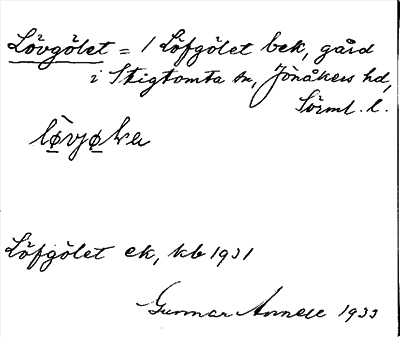 Lövgölet = / Löfgölet bek, gård
i Stigtomta sn, Jönåkers hd,
Sörml. l.
Löfgölet ek, kb 1931
Gunnar Annell 1933